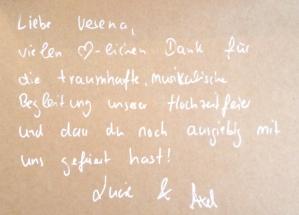 Liebe Vesena,
vielen ♡-lichen Dank für
die traumhafte, musikalische
Begleitung unserer Hochzeitsfeier
und dass du noch ausgiebig mit
uns gefeiert hast!
Lucie & Axel